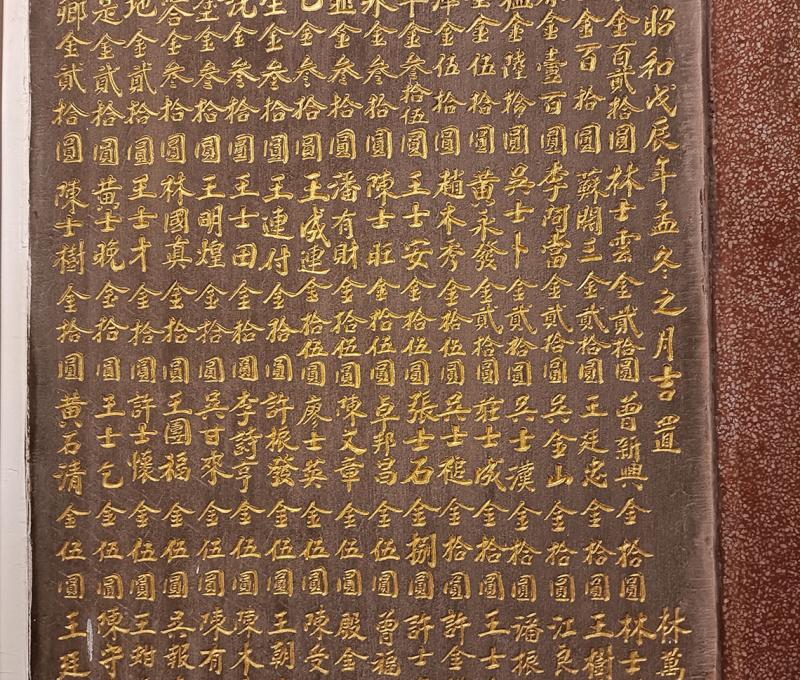 昭和戊辰年孟冬之月吉置 林萬
金百貳拾圓 林士雲 金貳拾圓 曾新興 金拾圓 林士
金百拾圓 蘇闊三 金貳拾圓 王廷忠 金拾圓 王樹
金壹百圓 李阿當 金貳拾圓 吳金山 金拾圓 江良
金陸拾圓 吳士卜 金貳拾圓 吳士漢 金拾圓 潘振
金伍拾圓 黃永發 金貳拾圓 莊士成 金拾圓 王士
金伍拾圓 趙木秀 金拾伍圓 吳士槌 金拾圓 許金
金叁拾伍圓 王士安 金拾伍圓 張士石 金捌圓 許士
永金叁拾圓 陳士旺 金拾伍圓 卓邦昌 金伍圓 曾福
金叁拾圓 潘有財 金拾伍圓 陳文章 金伍圓 殷金
金叁拾圓 王成連 金拾伍圓 廖士英 金伍圓 陳受
金叁拾圓 王連付 金拾圓 許振發 金伍圓 王朝
金叁拾圓 王士田 金拾圓 李詩亨 金伍圓 陳木
金叁拾圓 王明煌 金拾圓 吳甘來 金伍圓 陳有
金叁拾圓 林國真 金拾圓 王團福 金伍圓 吳報
地金貳拾圓 王士才 金拾圓 許士懷 金伍圓 王
是金貳拾圓 黃士晚 金拾圓 王士乞 金伍圓 陳守
卿金貳拾圓 陳士樹 金拾圓 黃石清 金伍圓 王廷